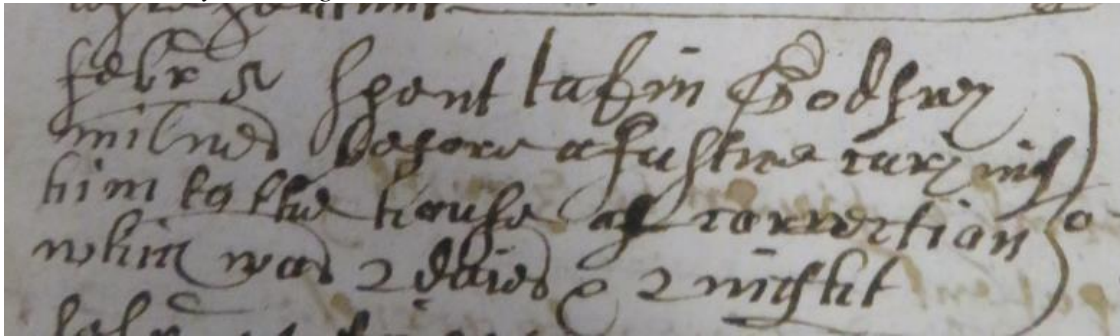 febr 5 spent takin Godfrey
milnes before a Justice carying
him to the house of correction o
which was 2 daies & 2 night